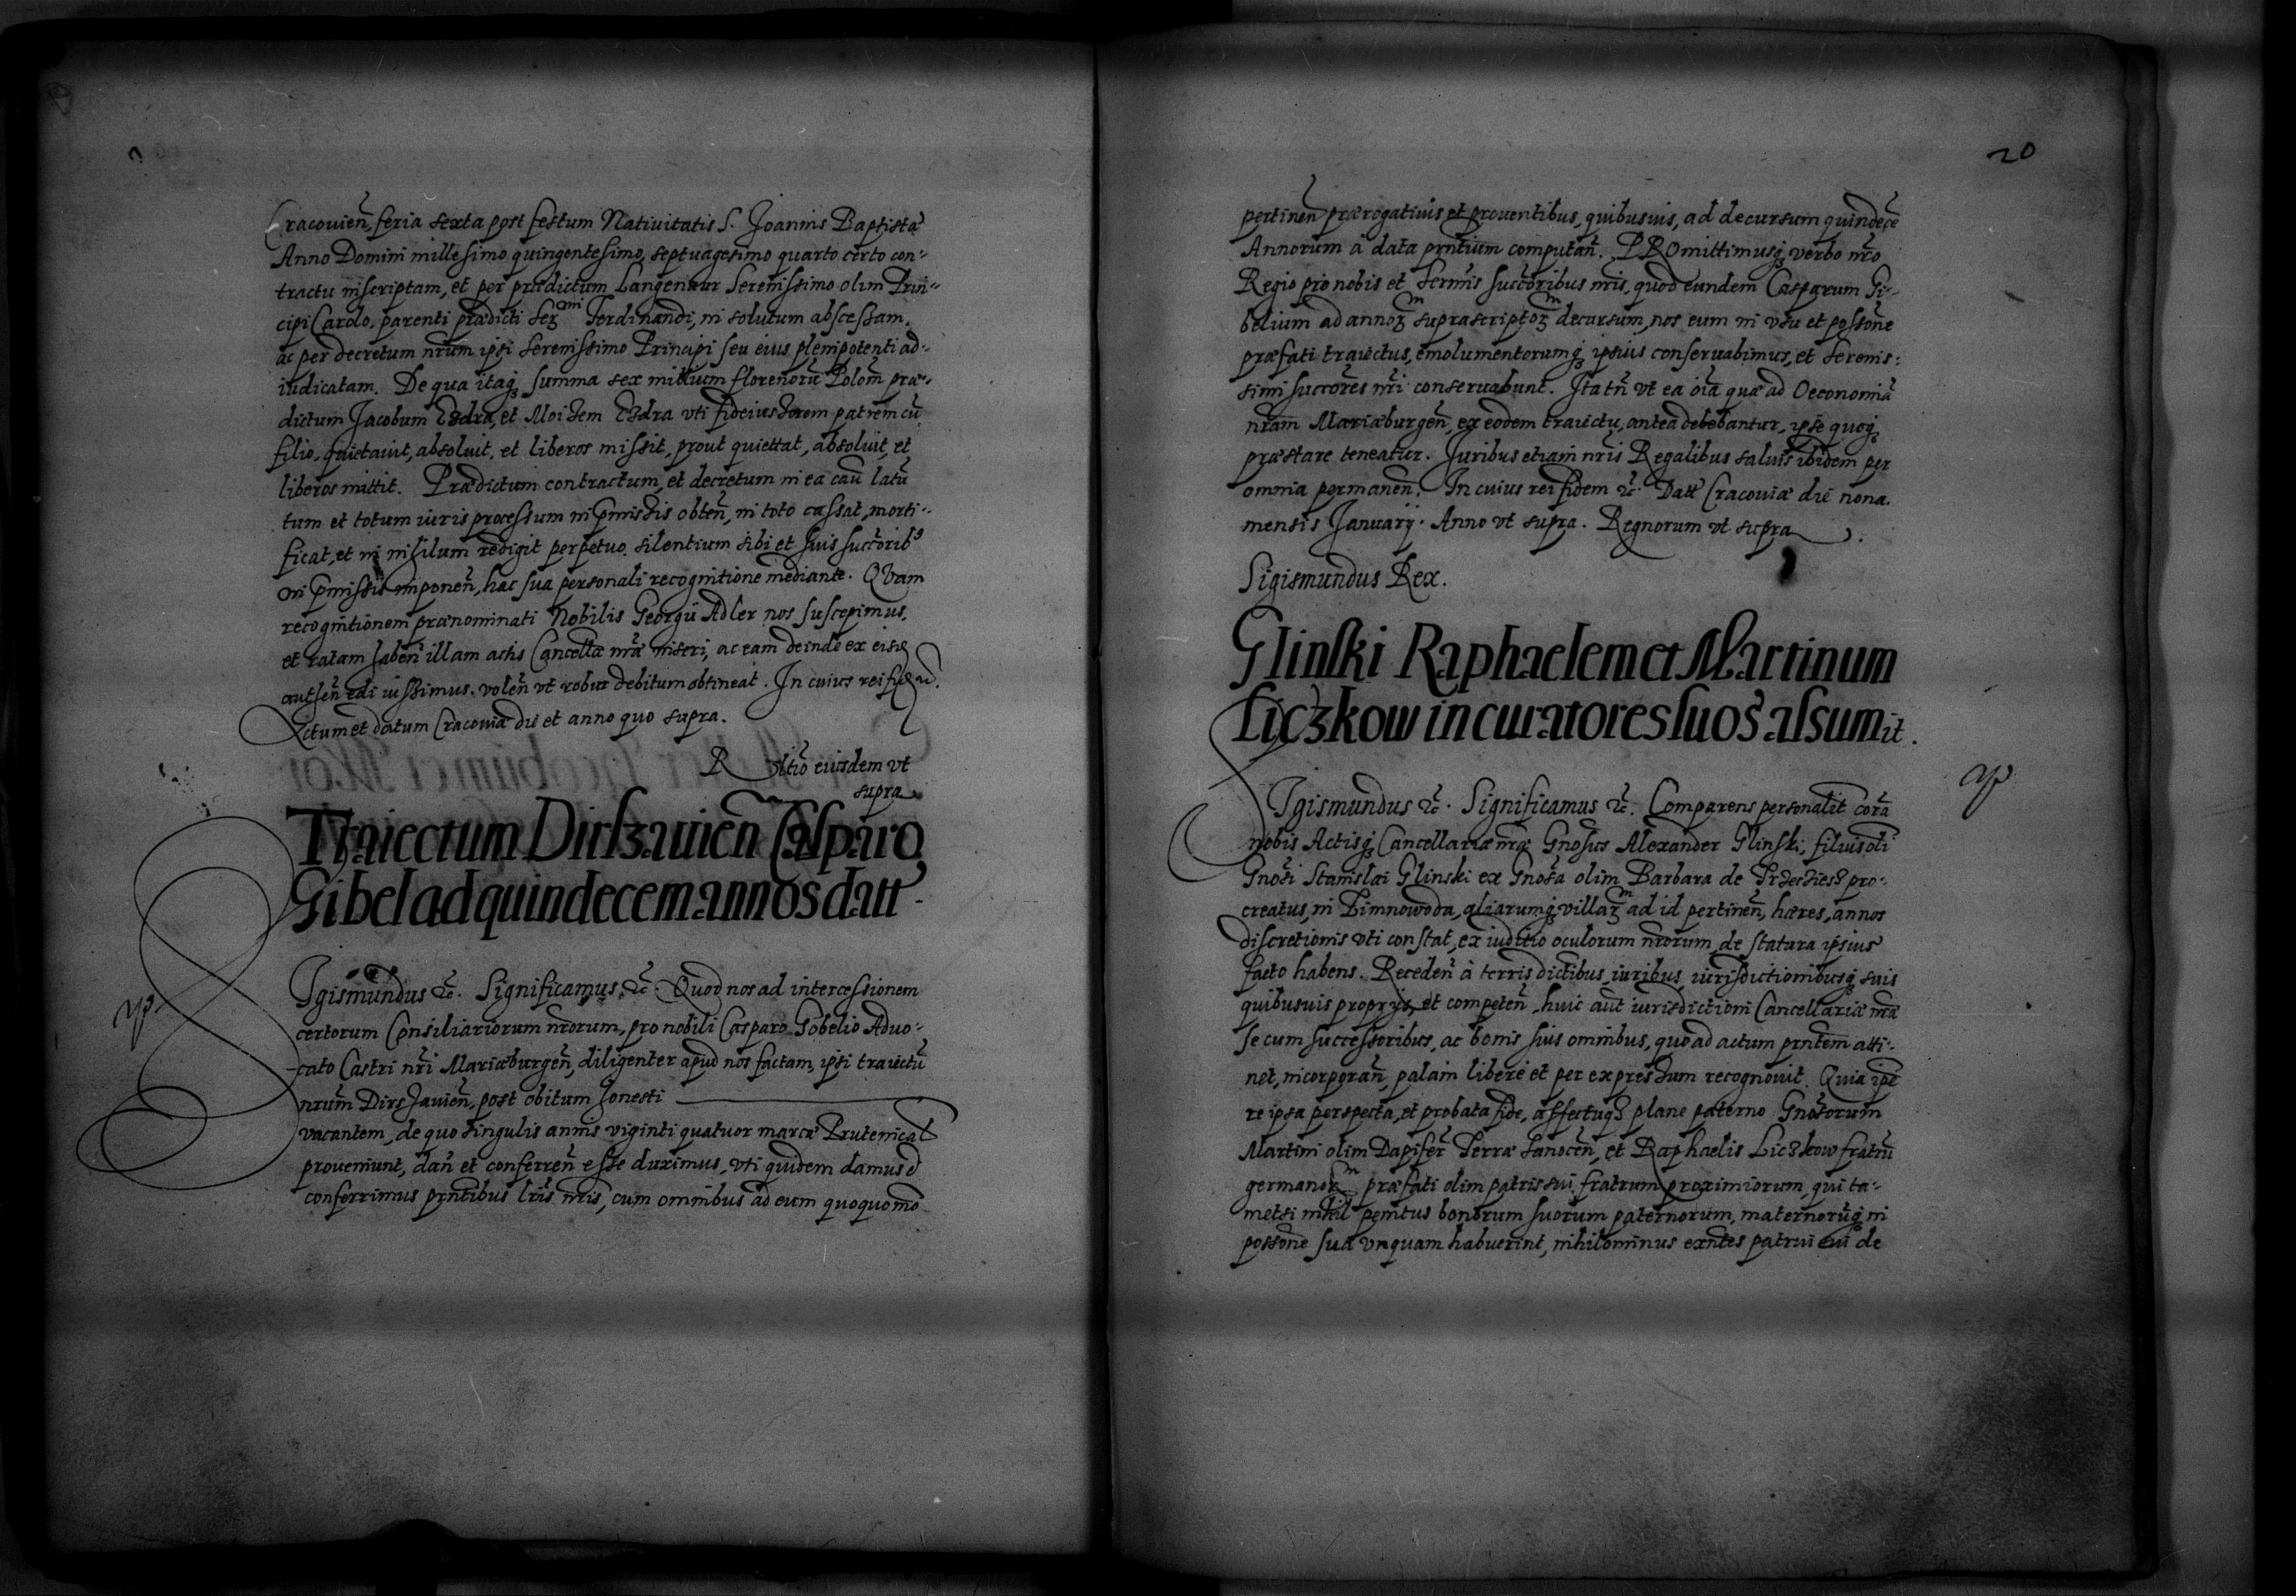 Cracouien̄, feria sexta post festum Natiuitatis S. Joannis Baptistæ
Anno Domini millesimo quingentesimo, septuagesimo quarto certo con-
tractu inscriptam, et per prædictum Langenaur Serenissimo olim Prin-
cipi Carolo, parenti prædicti Ser mi Ferdinandi, in solutum abscessam,
ac per decretum nr̄um ipsi Serenissimo Principi seu eius plenipotenti ad-
iudicatam. De qua itaq₃ summa sex millium florenorū Polon̄ præ-
dictum Jacobum Ezdra, et Moisem Ezdra vti fideiussorem patrem cū
filio, quietauit, absoluit, et liberos missit, prout quiettat, absoluit, et
liberos mittit. Prædictum contractum, et decretum in ea cau̅ latū
tum et totum iuris processum in p̄missis obten̄, in toto cassat, morti-
ficat, et in nihilum redigit perpetuo silentium sibi et suis succ̄torib⁹
in p̄missis imponen̄, hac sua personali recognitione mediante. QVam
recognitionem prænominati Nobilis Georgii Adler nos suscepimus,
et ratam haben̄ illam actis Cancellæ nr̄æ inseri, ac eam deinde ex eisd̄
authen̄ edi iussimus. volen̄ vt robur debitum obtineat. In cuius rei fidem ꝛc̄.
Actum et datum Cracouiæ die et anno quo supra.
R ltio eiusdem vt
supra
Traiectum Dirszauien̄ Casparo
Gibel ad quindecem annos datt
SIgismundus ꝛc̄. Significamus ꝛc̄. Quod nos ad intercessionem
certorum Consiliariorum nr̄orum, pro nobili Casparo Gobelio Aduo-
cato Castri nr̄i Mariæburgen̄, diligenter apud nos factam, ipsi traiectū
nrūm Dirszauien̄, post obitum honesti
vacantem, de quo singulis annis viginti quatuor marcæ Prutenical
proueniunt, dan̄ et conferren̄ esse duximus, vti quidem damus et
conferrimus pr̄ntibus lr̄is nr̄is, cum omnibus ad eum quoquomō
20
pertinen̄ prærogatiuis et prouentibus, quibusuis, ad decursum quindecē
Annorum à data pr̄ntium computan̄. PROmittimusq₃ verbo nr̄o
Regio pro nobis et Serm̄is succ̄toribus nr̄is, quod eundem Casparum Gi-
belium ad annoꝝ m suprascriptoꝝ m decursum, nos eum in vsu et posson̄e
præfati traiectus, emolumentorumq₃ ipsius conseruabimus, et Serenis-
simi succ̄ores nr̄i conseruabunt. Ita tn̄ vt ea oīa quæ ad Oeconomiā
nrām Mariæburgen̄, ex eodem traiectu, antea debebantur, ipse quoq₃
præstare teneatur. Juribus etiam nr̄is Regalibus saluis ibidem per
omnia permanen̄. In cuius rei fidem ꝛc̄. Datt Cracouiæ die nona
mensis Januarij. Anno vt supra. Regnorum vt supra.
Sigismundus Rex.
Glinski Raphaelem et Martinum
Liczkow in curatores suos assumit.
SIgismundus ꝛc̄. Significamus ꝛc̄. Comparens personalit̄ corā
nobis Actisq₃ Cancellariæ nr̄æ Gnosus Alexander Glinski, filius oli
Gnosi Stanislai Glinski ex Gnosa olim Barbara de pro-
creatus, in Zimnowoda, aliarumq₃ villaꝝ m ad id pertinen̄, hæres, annos
discretionis vti constat, ex iuditio oculorum nrōrum, de statura ipsius
facto habens. Receden̄ à terris dictibus, iuribus, iurisdictionibusq₃ suis
quibusuis proprijs, et competen̄, huic aut̄ iurisdictioni Cancellariæ nr̄æ
se cum successoribus, ac bonis suis omnibus, quo ad actum pr̄ntem atti-
net, incorporan̄, palam libere et per expressum recognouit. Quia ip̄e
re ipsa perspecta, et probata fide, affectuq₃ plane paterno Gnosorum
Martini olim Dapifer̄ Terræ Sanocen̄, et Raphaelis Liczkow fratrū
germanoꝝ m præfati olim patris sui, fratrum proximiorum, qui ta-
metsi nihil penitus bonorum suorum paternorum, maternorūq₃ in
posson̄e sua vnquam habuerint, nihilominus exn̄tes patrui eui de